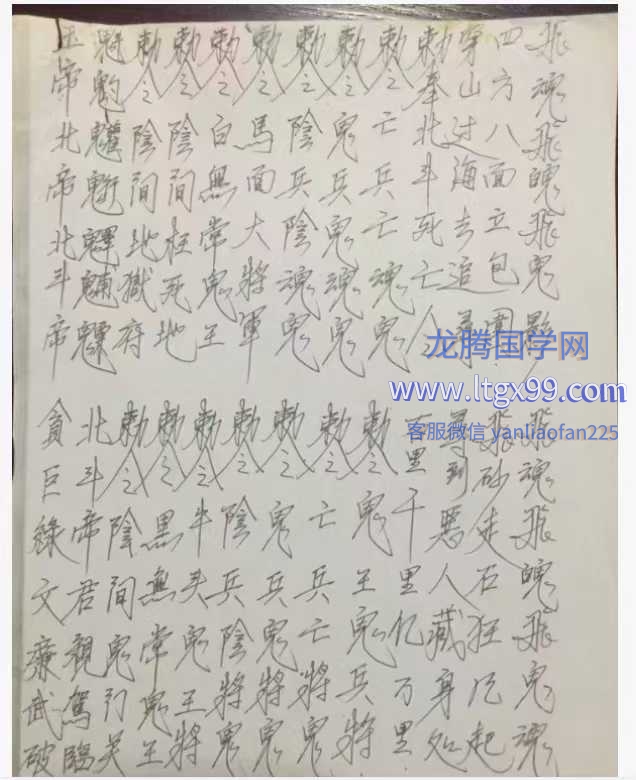 玉帝北帝北斗帝
勅令陰間地獄府
勅令陰間枉死地
勅令白無常鬼王
勅令馬面大將軍
勅令陰兵陰魂鬼
勅令鬼兵鬼魂鬼
勅令亡兵亡魂鬼
勅奉北斗死亡令
穿山过海去追尋
四方八面立包圍
飛魂飛魄飛鬼影
貪巨綠文廉武破
北斗帝君親駕臨
勅令陰間鬼门关
勅令黑無常鬼王
勅令牛头鬼王將
勅令陰兵陰將鬼
勅令鬼兵鬼將鬼
勅令亡兵亡將鬼
勅令鬼王鬼兵將
百里千里亿万里
尋到惡人藏身处
飛砂走石狂风起
飛魂飛魄飛鬼魂
龙腾国学网
www.ltgx99.com
客服微信 yanliaofan225